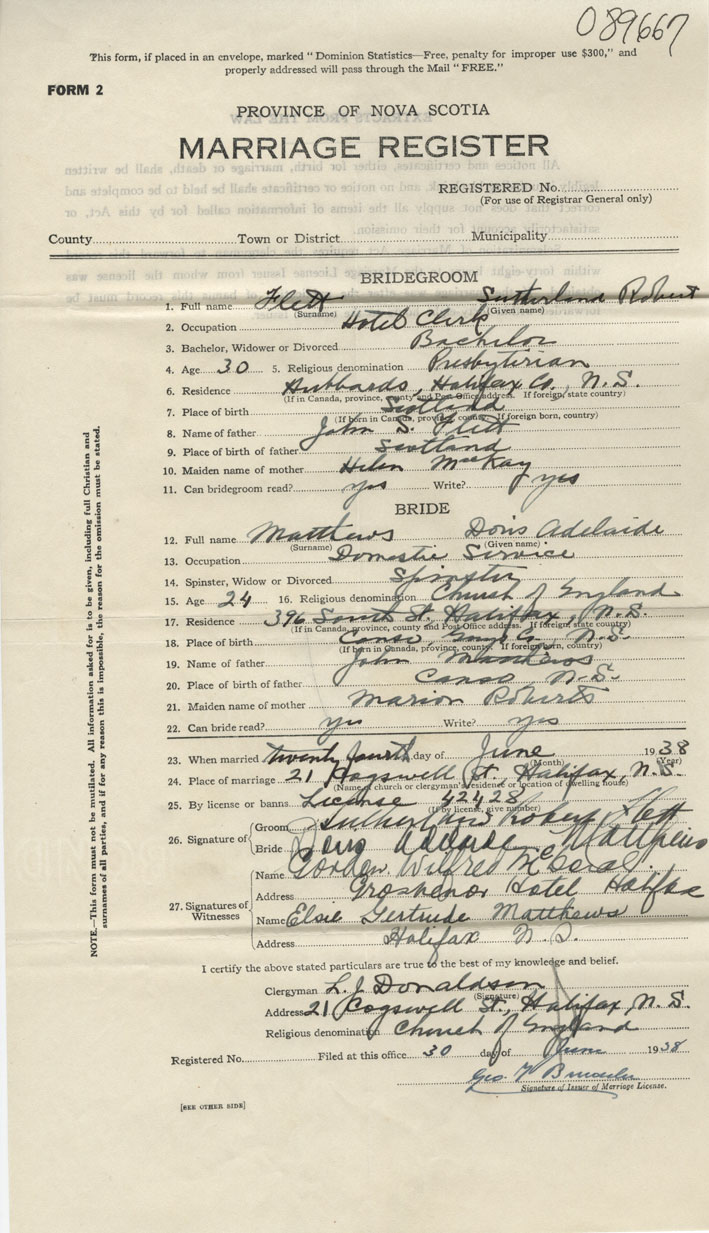 089667
This form, if placed in an envelope, marked "Dominion Statistics—Free, penalty for improper use $300," and
properly addressed will pass through the Mail "FREE."
FORM 2
PROVINCE OF NOVA SCOTIA
MARRIAGE REGISTER
REGISTERED No.
(For use of Registrar General only)
County Town or District Municipality
BRIDEGROOM
1. Full name Flett Sutherland Robert
(Surname) (Given name)
2. Occupation Hotel Clerk
3. Bachelor, Widower or Divorced Bachelor
4. Age 30 5. Religious denomination Presbyterian
6. Residence Hubbards, Halifax Co., N.S.
(If in Canada, province, county and Post Office address. If foreign, state country)
7. Place of birth Scotland
(If born in Canada, province, county. If foreign born, country)
8. Name of father John S. Flett
9. Place of birth of father Scotland
10. Maiden name of mother Helen MacKay
11. Can bridegroom read? yes Write? yes
BRIDE
12. Full name Matthews Doris Adelaide
(Surname) (Given name)
13. Occupation Domestic Service
14. Spinster, Widow or Divorced Spinster
15. Age 24 16. Religious denomination Church of England
17. Residence 396 South St. Halifax, N.S.
(If in Canada, province, county and Post Office address. If foreign, state country)
18. Place of birth Canso, Guys Co., N.S.
(If born in Canada, province, county. If foreign born, country)
19. Name of father John Matthews
20. Place of birth of father Canso, N.S.
21. Maiden name of mother Marion Roberts
22. Can bride read? yes Write? yes
23. When married twenty fourth day of June 1938
(Month) (Year)
24. Place of marriage 21 Cogswell St. Halifax, N.S.
(Name of church or clergyman's residence or location of dwelling house)
25. By license or banns License 42428
(If by license, give number)
26. Signature of Groom Sutherland Robert Flett
Bride Doris Adelaide Matthews
27. Signatures of Witnesses
Name Gordon Wilfred
Address Grosvenor Hotel Halifax
Name Elsie Gertrude Matthews
Address Halifax N.S.
I certify the above stated particulars are true to the best of my knowledge and belief.
Clergyman L. J. Donaldson
(Signature)
Address 21 Cogswell St., Halifax, N.S.
Religious denomination Church of England
Registered No. Filed at this office 30 day of June 1938
Geo.
Signature of Issuer of Marriage License.
[SEE OTHER SIDE]
NOTE.—This form must not be mutilated. All information asked for is to be given, including full Christian and
surnames of all parties, and if for any reason this is impossible, the reason for the omission must be stated.